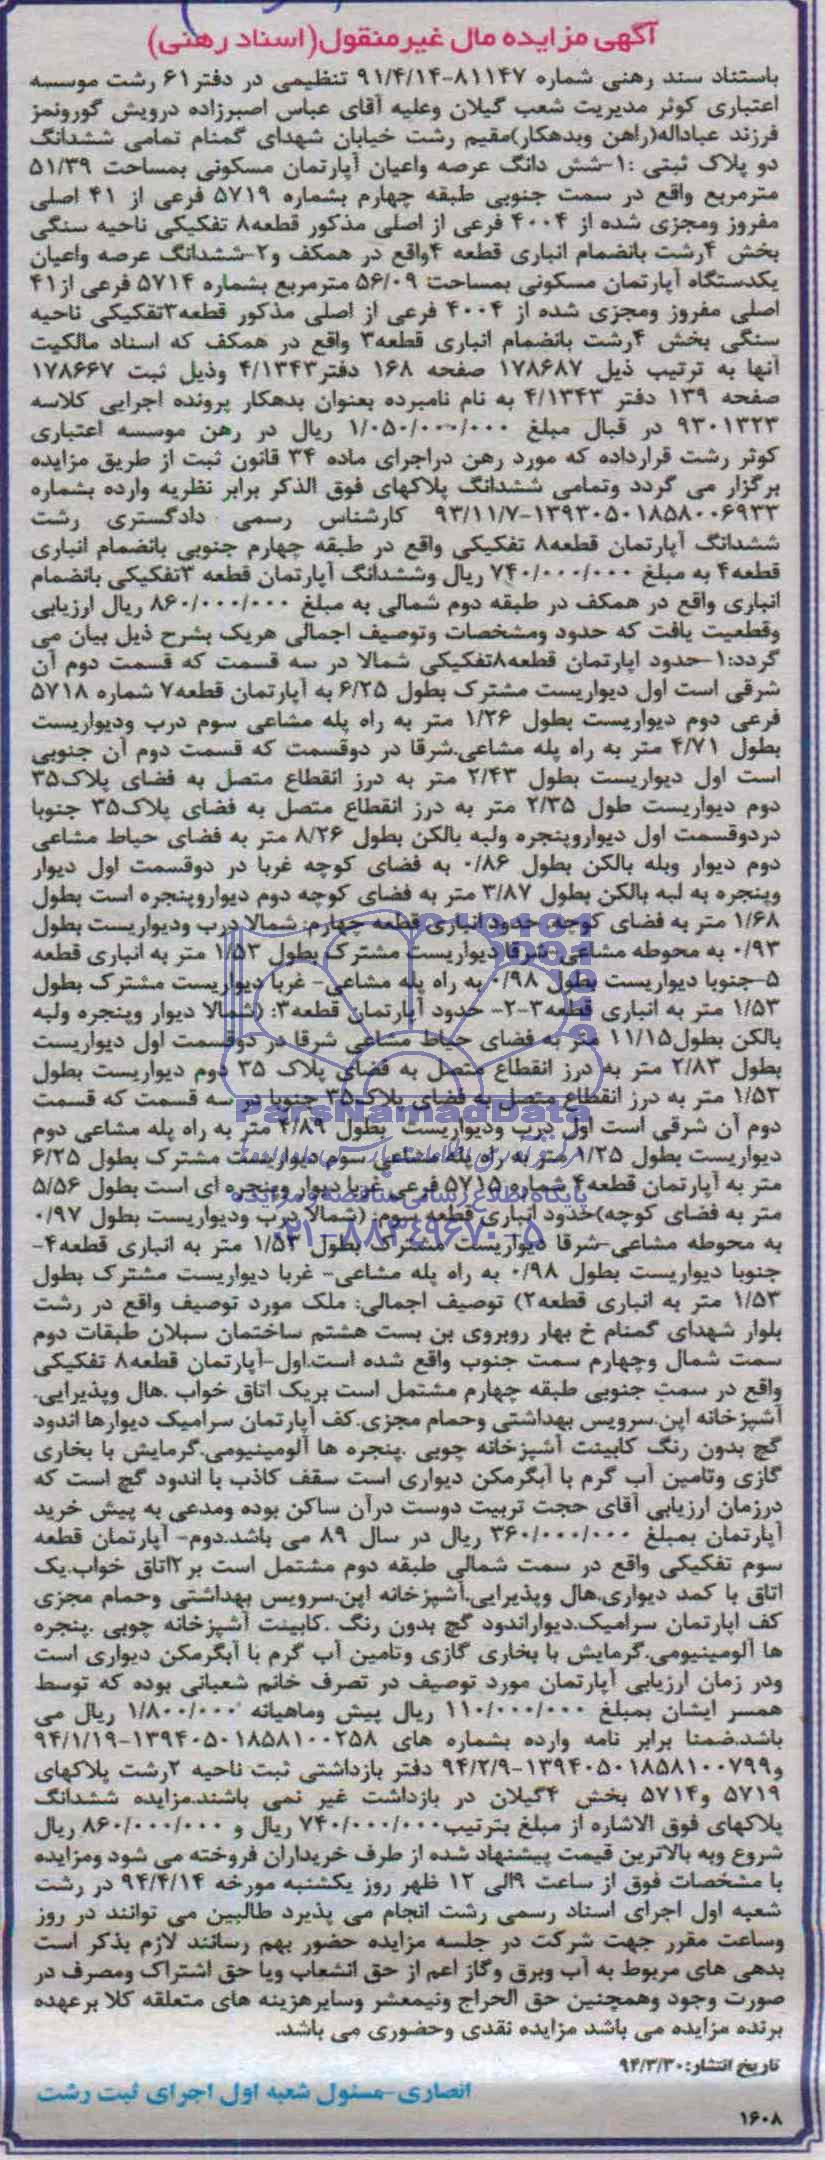 آگهی مزایده مال غیرمنقول(اسناد رهنی)
باستناد سند رهنی شماره ۸۱۱۴۷-۹۱/۴/۱۴ تنظیمی در دفتر۶۱ رشت موسسه
اعتباری کوثر مدیریت شعب گیلان وعلیه آقای عباس اصبرزاده درویش گورونمز
فرزند عباداله(راهن وبدهکار)مقیم رشت خیابان شهدای گمنام تمامی ششدانگ
دو پلاک ثبتی :۱-شش دانگ عرصه واعیان آپارتمان مسکونی بمساحت ۵۱/۳۹
مترمربع واقع در سمت جنوبی طبقه چهارم بشماره ۵۷۱۹ فرعی از ۴۱ اصلی
مفروز ومجزی شده از ۴۰۰۴ فرعی از اصلی مذکور قطعه۸ تفکیکی ناحیه سنگی
بخش ۴رشت بانضمام انباری قطعه ۴واقع در همکف و۲-ششدانگ عرصه واعیان
یکدستگاه آپارتمان مسکونی بمساحت ۵۶/۰۹ مترمربع بشماره ۵۷۱۴ فرعی از۴۱
اصلی مفروز ومجزی شده از ۴۰۰۴ فرعی از اصلی مذکور قطعه۳تفکیکی ناحیه
سنگی بخش ۴رشت بانضمام انباری قطعه۳ واقع در همکف که اسناد مالکیت
آنها به ترتیب ذیل ۱۷۸۶۸۷ صفحه ۱۶۸ دفتر۴/۱۳۴۳ وذیل ثبت ۱۷۸۶۶۷
صفحه ۱۳۹ دفتر ۴/۱۳۴۳ به نام نامبرده بعنوان بدهکار پرونده اجرایی کلاسه
۹۳۰۱۳۲۳ در قبال مبلغ ۱/۰۵۰/۰۰۰/۰۰۰ ریال در رهن موسسه اعتباری
کوثر رشت قرارداده که مورد رهن دراجرای ماده ۳۴ قانون ثبت از طریق مزایده
برگزار می گردد وتمامی ششدانگ پلاکهای فوق الذکر برابر نظریه وارده بشماره
۱۳۹۳۰۵۰۱۸۵۸۰۰۶۹۳۳-۹۳/۱۱/۷ کارشناس رسمی دادگستری رشت
ششدانگ آپارتمان قطعه۸ تفکیکی واقع در طبقه چهارم جنوبی بانضمام انباری
قطعه۴ به مبلغ ۷۴۰/۰۰۰/۰۰۰ ریال وششدانگ آپارتمان قطعه ۳تفکیکی بانضمام
انباری واقع در همکف در طبقه دوم شمالی به مبلغ ۸۶۰/۰۰۰/۰۰۰ ریال ارزیابی
وقطعیت یافت که حدود ومشخصات وتوصیف اجمالی هریک بشرح ذیل بیان می
گردد:۱-حدود اپارتمان قطعه۸تفکیکی شمالا در سه قسمت که قسمت دوم آن
شرقی است اول دیواریست مشترک بطول ۶/۲۵ به آپارتمان قطعه۷ شماره ۵۷۱۸
فرعی دوم دیواریست بطول ۱/۲۶ متر به راه پله مشاعی سوم درب ودیواریست
بطول ۴/۷۱ متر به راه پله مشاعی.شرقا در دوقسمت که قسمت دوم آن جنوبی
است اول دیواریست بطول ۲/۴۳ متر به درز انقطاع متصل به فضای پلاک۳۵
دوم دیواریست طول ۲/۳۵ متر به درز انقطاع متصل به فضای پلاک۳۵ جنوبا
دردوقسمت اول دیواروپنجره ولبه بالکن بطول ۸/۲۶ متر به فضای حیاط مشاعی
دوم دیوار وبله بالکن بطول ۰/۸۶ به فضای کوچه غربا در دوقسمت اول دیوار
وپنجره به لبه بالکن بطول ۳/۸۷ متر به فضای کوچه دوم دیواروپنجره است بطول
۱/۶۸ متر به فضای کوچه.حدود انباری قطعه چهارم: شمالا درب ودیواریست بطول
۰/۹۳ به محوطه مشاعی-شرقا دیواریست مشترک بطول ۱/۵۳ متر به انباری قطعه
۵-جنوبا دیواریست بطول ۰/۹۸ به راه پله مشاعی- غربا دیواریست مشترک بطول
۱/۵۳ متر به انباری قطعه۳-۲- حدود آپارتمان قطعه۳: (شمالا دیوار وپنجره ولبه
بالکن بطول۱۱/۱۵ متر به فضای حیاط مشاعی شرقا در دوقسمت اول دیواریست
بطول ۲/۸۳ متر به درز انقطاع متصل به فضای پلاک ۳۵ دوم دیواریست بطول
۱/۵۳ متر به درز انقطاع متصل به فضای پلاک۳۵ جنوبا در سه قسمت که قسمت
دوم آن شرقی است اول درب ودیواریست بطول ۴/۸۹ متر به راه پله مشاعی دوم
دیواریست بطول ۱/۲۵ متر به راه پله مشاعی سوم دیواریست مشترک بطول ۶/۲۵
متر به آپارتمان قطعه۴ شماره ۵۷۱۵ فرعی غربا دیوار وپنجره ای است بطول ۵/۵۶
متر به فضای کوچه)حدود انباری قطعه سوم: (شمالا درب ودیواریست بطول ۰/۹۷
به محوطه مشاعی-شرقا دیواریست مشترک بطول ۱/۵۳ متر به انباری قطعه۴-
جنوبا دیواریست بطول ۰/۹۸ به راه پله مشاعی- غربا دیواریست مشترک بطول
۱/۵۳ متر به انباری قطعه۲) توصیف اجمالی: ملک مورد توصیف واقع در رشت
بلوار شهدای گمنام خ بهار روبروی بن بست هشتم ساختمان سبلان طبقات دوم
سمت شمال وچهارم سمت جنوب واقع شده است.اول-آپارتمان قطعه۸ تفکیکی
واقع در سمت جنوبی طبقه چهارم مشتمل است بریک اتاق خواب .هال وپذیرایی.
آشپزخانه اپن.سرویس بهداشتی وحمام مجزی.کف آپارتمان سرامیک دیوارها اندود
گچ بدون رنگ کابینت آشپزخانه چوبی .پنجره ها آلومینیومی.گرمایش با بخاری
گازی وتامین آب گرم با آبگرمکن دیواری است سقف کاذب با اندود گچ است که
درزمان ارزیابی آقای حجت تربیت دوست درآن ساکن بوده ومدعی به پیش خرید
آپارتمان بمبلغ ۳۶۰/۰۰۰/۰۰۰ ریال در سال ۸۹ می باشد.دوم- آپارتمان قطعه
سوم تفکیکی واقع در سمت شمالی طبقه دوم مشتمل است بر۲اتاق خواب.یک
اتاق با کمد دیواری.هال وپذیرایی.آشپزخانه اپن.سرویس بهداشتی وحمام مجزی
کف اپارتمان سرامیک.دیواراندود گچ بدون رنگ .کابینت آشپزخانه چوبی .پنجره
ها آلومینیومی.گرمایش با بخاری گازی وتامین آب گرم با آبگرمکن دیواری است
ودر زمان ارزیابی آپارتمان مورد توصیف در تصرف خانم شعبانی بوده که توسط
همسر ایشان بمبلغ ۱۱۰/۰۰۰/۰۰۰ ریال پیش وماهیانه ۱/۸۰۰/۰۰۰ ریال می
باشد.ضمنا برابر نامه وارده بشماره های ۱۳۹۴۰۵۰۱۸۵۸۱۰۰۲۵۸-۹۴/۱/۱۹
و۱۳۹۴۰۵۰۱۸۵۸۱۰۰۷۹۹-۹۴/۲/۹ دفتر بازداشتی ثبت ناحیه ۲رشت پلاکهای
۵۷۱۹ و۵۷۱۴ بخش ۴گیلان در بازداشت غیر نمی باشند.مزایده ششدانگ
پلاکهای فوق الاشاره از مبلغ بترتیب۷۴۰/۰۰۰/۰۰۰ ریال و ۸۶۰/۰۰۰/۰۰۰ ریال
شروع وبه بالاترین قیمت پیشنهاد شده از طرف خریداران فروخته می شود ومزایده
با مشخصات فوق از ساعت ۹الی ۱۲ ظهر روز یکشنبه مورخه ۹۴/۴/۱۴ در رشت
شعبه اول اجرای اسناد رسمی رشت انجام می پذیرد طالبین می توانند در روز
وساعت مقرر جهت شرکت در جلسه مزایده حضور بهم رسانند لازم بذکر است
بدهی های مربوط به آب وبرق وگاز اعم از حق انشعاب ویا حق اشتراک ومصرف در
صورت وجود وهمچنین حق الحراج ونیمعشر وسایرهزینه های متعلقه کلا برعهده
برنده مزایده می باشد مزایده نقدی وحضوری می باشد.
تاریخ انتشار:۹۴/۳/۳۰
انصاری-مسئول شعبه اول اجرای ثبت رشت
۱۶۰۸
ParsNamadData
پایگاه اطلاع رسانی مناقصه و مزایده
۰۲۱-۸۸۳۴۹۶۷۰-۵